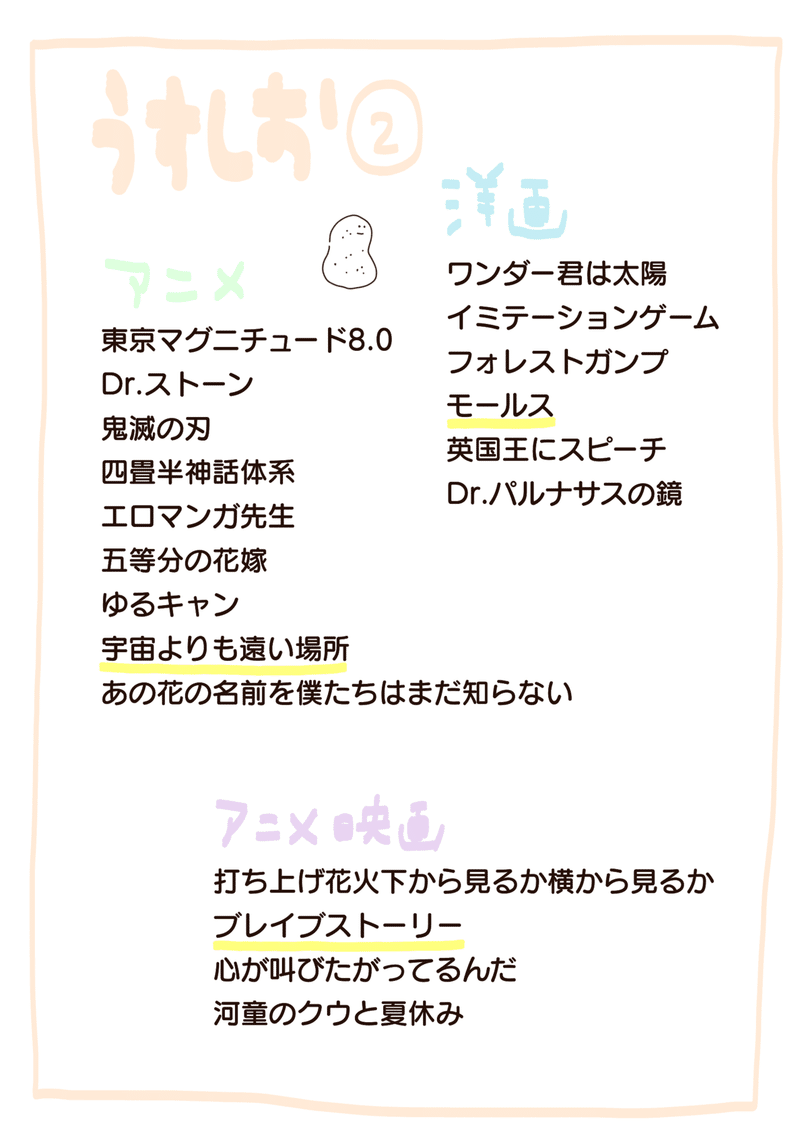 うすしお②
アニメ
東京マグニチュード8.0
Dr.ストーン
鬼滅の刃
四畳半神話体系
エロマンガ先生
五等分の花嫁
ゆるキャン
宇宙よりも遠い場所
あの花の名前を僕たちはまだ知らない
洋画
ワンダー君は太陽
イミテーションゲーム
フォレストガンプ
モールス
英国王にスピーチ
Dr.パルナサスの鏡
アニメ映画
打ち上げ花火下から見るか横から見るか
ブレイブストーリー
心が叫びたがってるんだ
河童のクウと夏休み